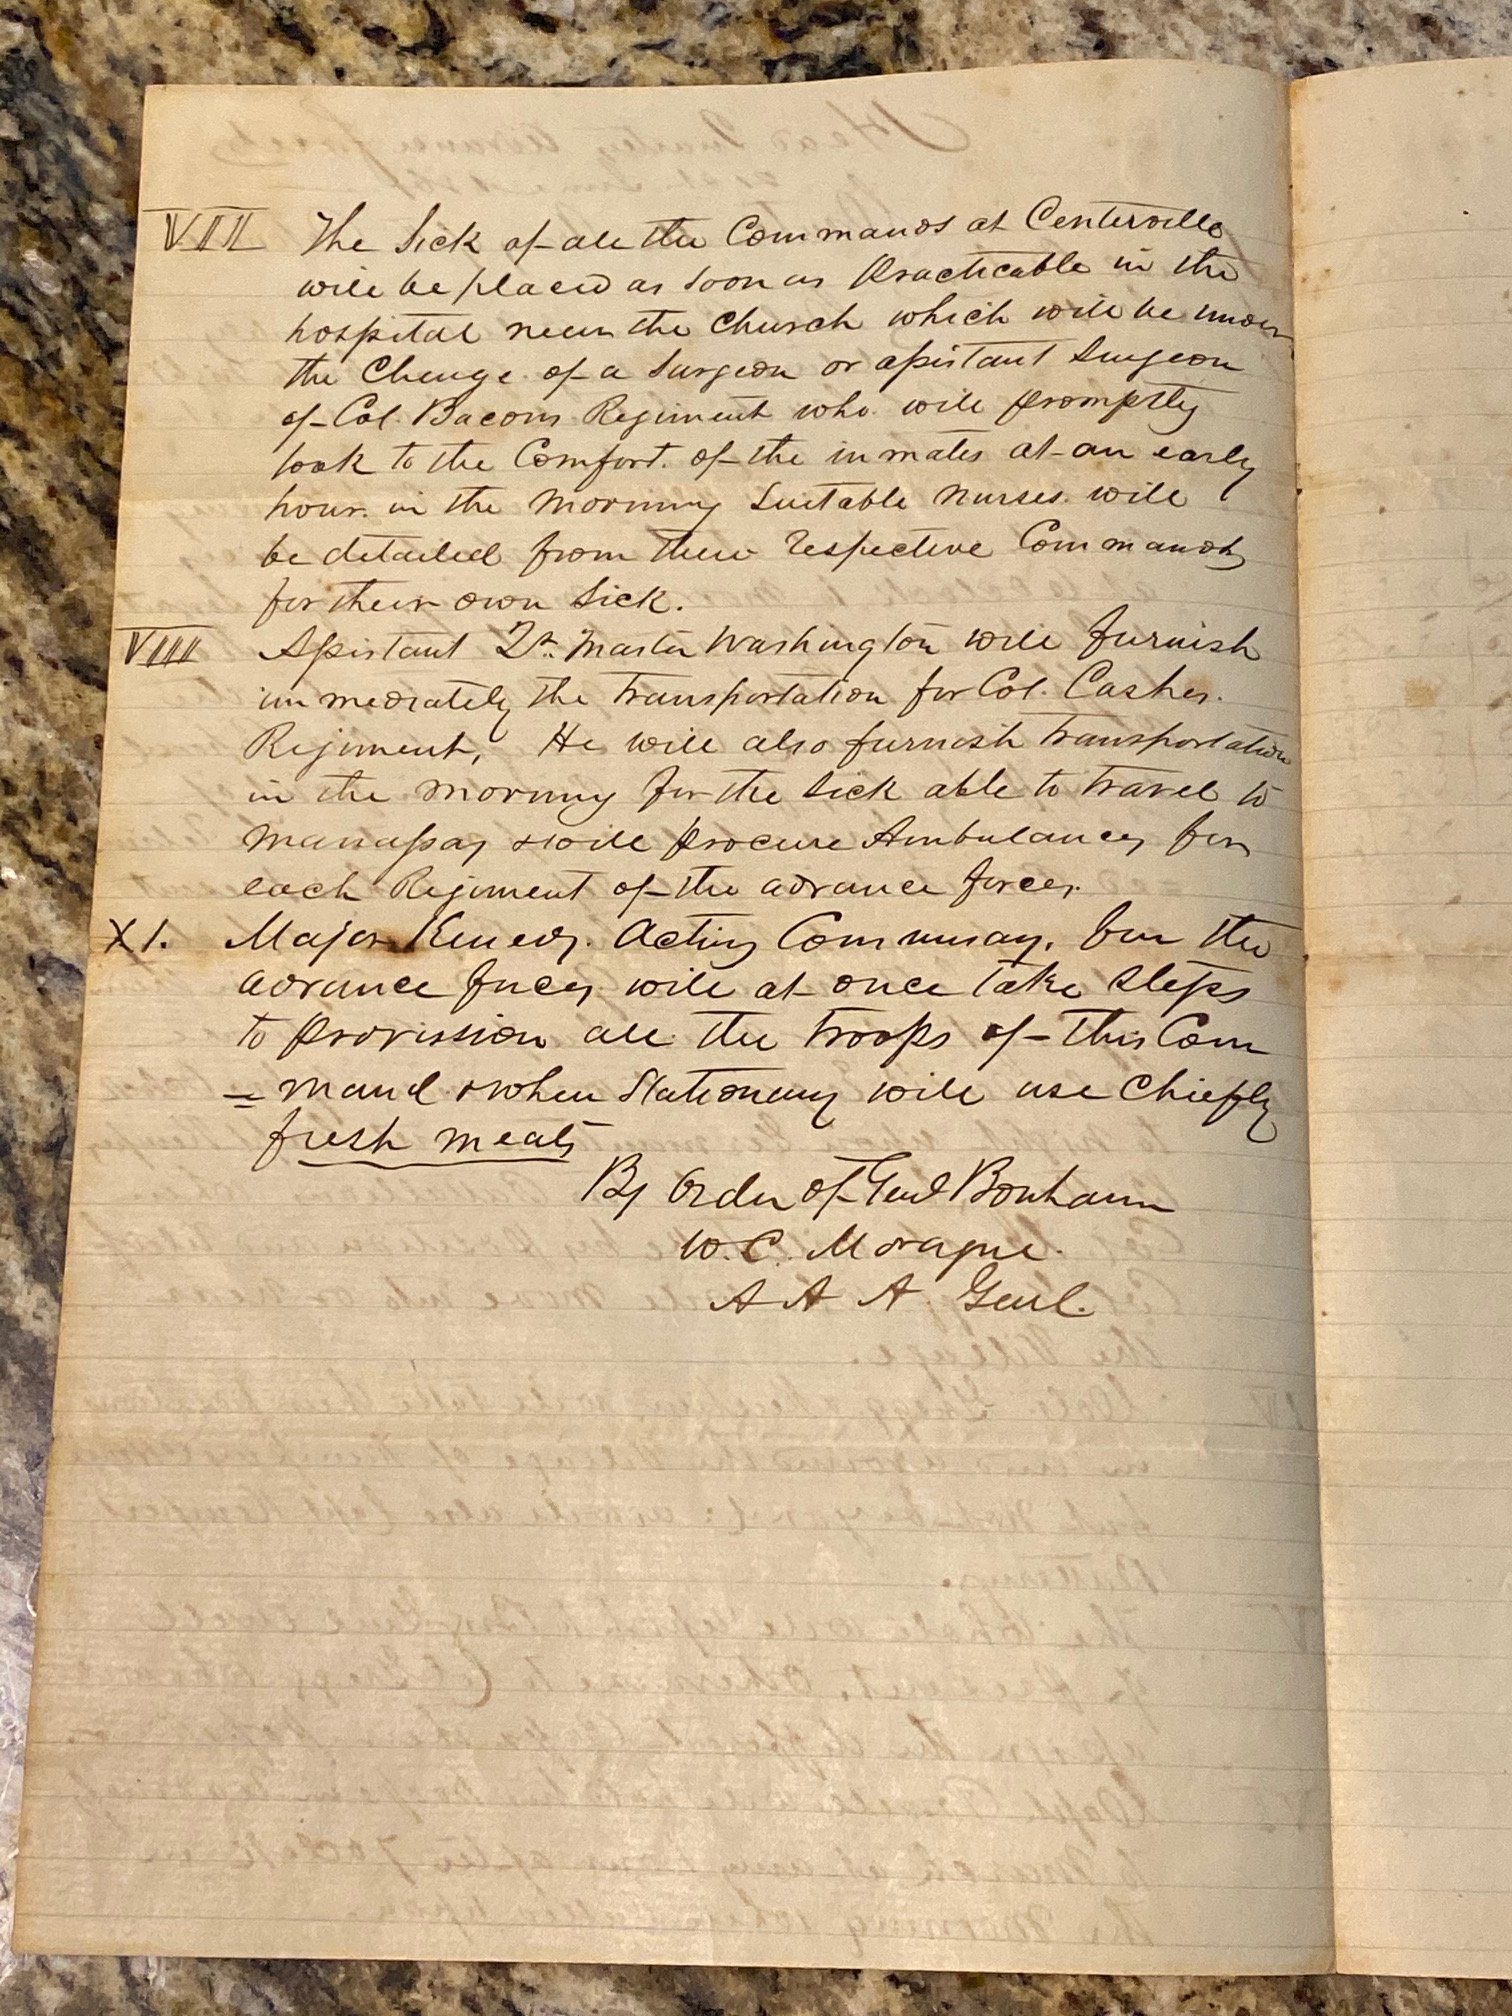 VII The Sick of all the Commands at Centerville
will be placed as soon as practicable in the
hospital near the Church which will be under
the Charge of a Surgeon or assistant Surgeon
of Col. Bacons Regiment who will promptly
look to the Comfort. of the inmates at an early
hour in the morning Suitable nurses will
be detailed from their respective Commands
for their own Sick.
VIII Assistant Qr. Master Washington will furnish
immediately the transportation for Col. Cashes.
Regiment, He will also furnish transportation
in the morning for the Sick able to travel to
Manassas & will procure Ambulances for
each Regiment of the advance forces.
XI. Major Kenedy. Acting Commissary. for the
advance forces will at once take steps
to provission all the troops of this Com
= mand & when Stationary will use Chiefly
fresh meats
By Order of Genl Bonham
W. C. Moragne.
A A A. Genl.